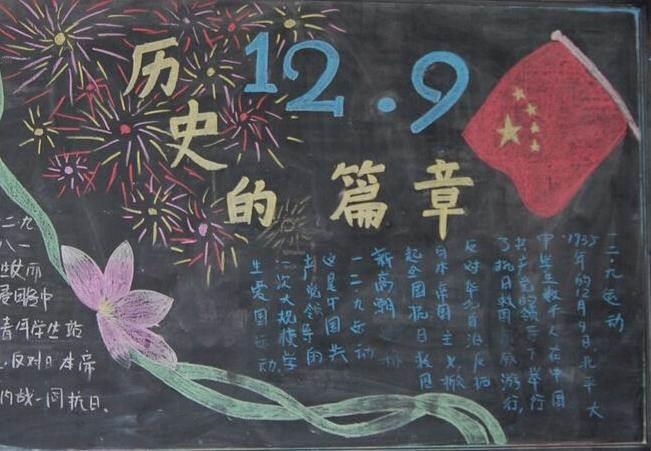 12.9
历史的篇章
一二九运动
1935年的12月9日北平大
中学生数千人在中国
共产党的领导下举行
了抗日救国示威游行,
反对华北自治反抗
日本帝国主义,掀
起全国抗日救国
新高潮
一二九运动
这是中国共
产党领导的
一次大规模学
生爱国运动.
二九
八一
青年学生站
反对日本帝
内战一同抗日.